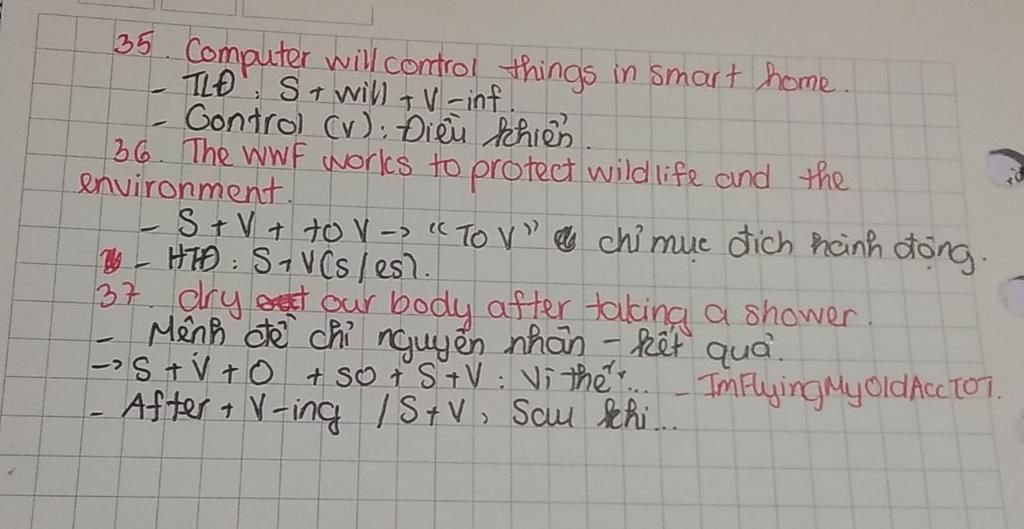 35. Computer will control things in smart home.
- TLĐ: S + will + V-inf.
- Control (v): Điều khiển.
36. The WWF works to protect wildlife and the
environment.
- S + V + to V -> "To V" chỉ mục đích hành động.
- HTĐ: S + V(s/es).
37. dry our body after taking a shower.
- Mệnh đề chỉ nguyên nhân - kết quả.
-> S + V + O + so + S + V: Vì thế... - ImFlyingMyOldAccTOT.
- After + V-ing / S + V, Sau khi...